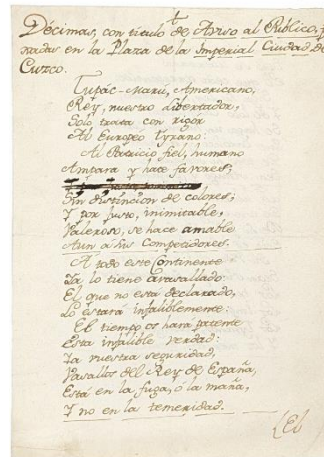 Décimas, con titulo de Aviso al Público,
nadas en la Plaza de la Imperial Ciudad de
Cuzco.
Tupác-Marú, Americano,
Rey, nuestro libertador,
Solo trata con rigór
Al Européo tyrano:
Al Patricio fiel, humano
Ampara y hace favores;
Sin distincion de colores;
Y por justo, inimitable,
Valeroso, se hace amable
Aun a sus Competidores.
A todo este Continente
Ya lo tiene avasallado:
El que no está declarado,
Lo estará infaliblemente:
El tiempo os hará patente
Esta infalible verdad:
Ya vuestra seguridad,
Vasallos del Rey de España,
Está en la fuga, ó la maña,
Y no en la temeridad.